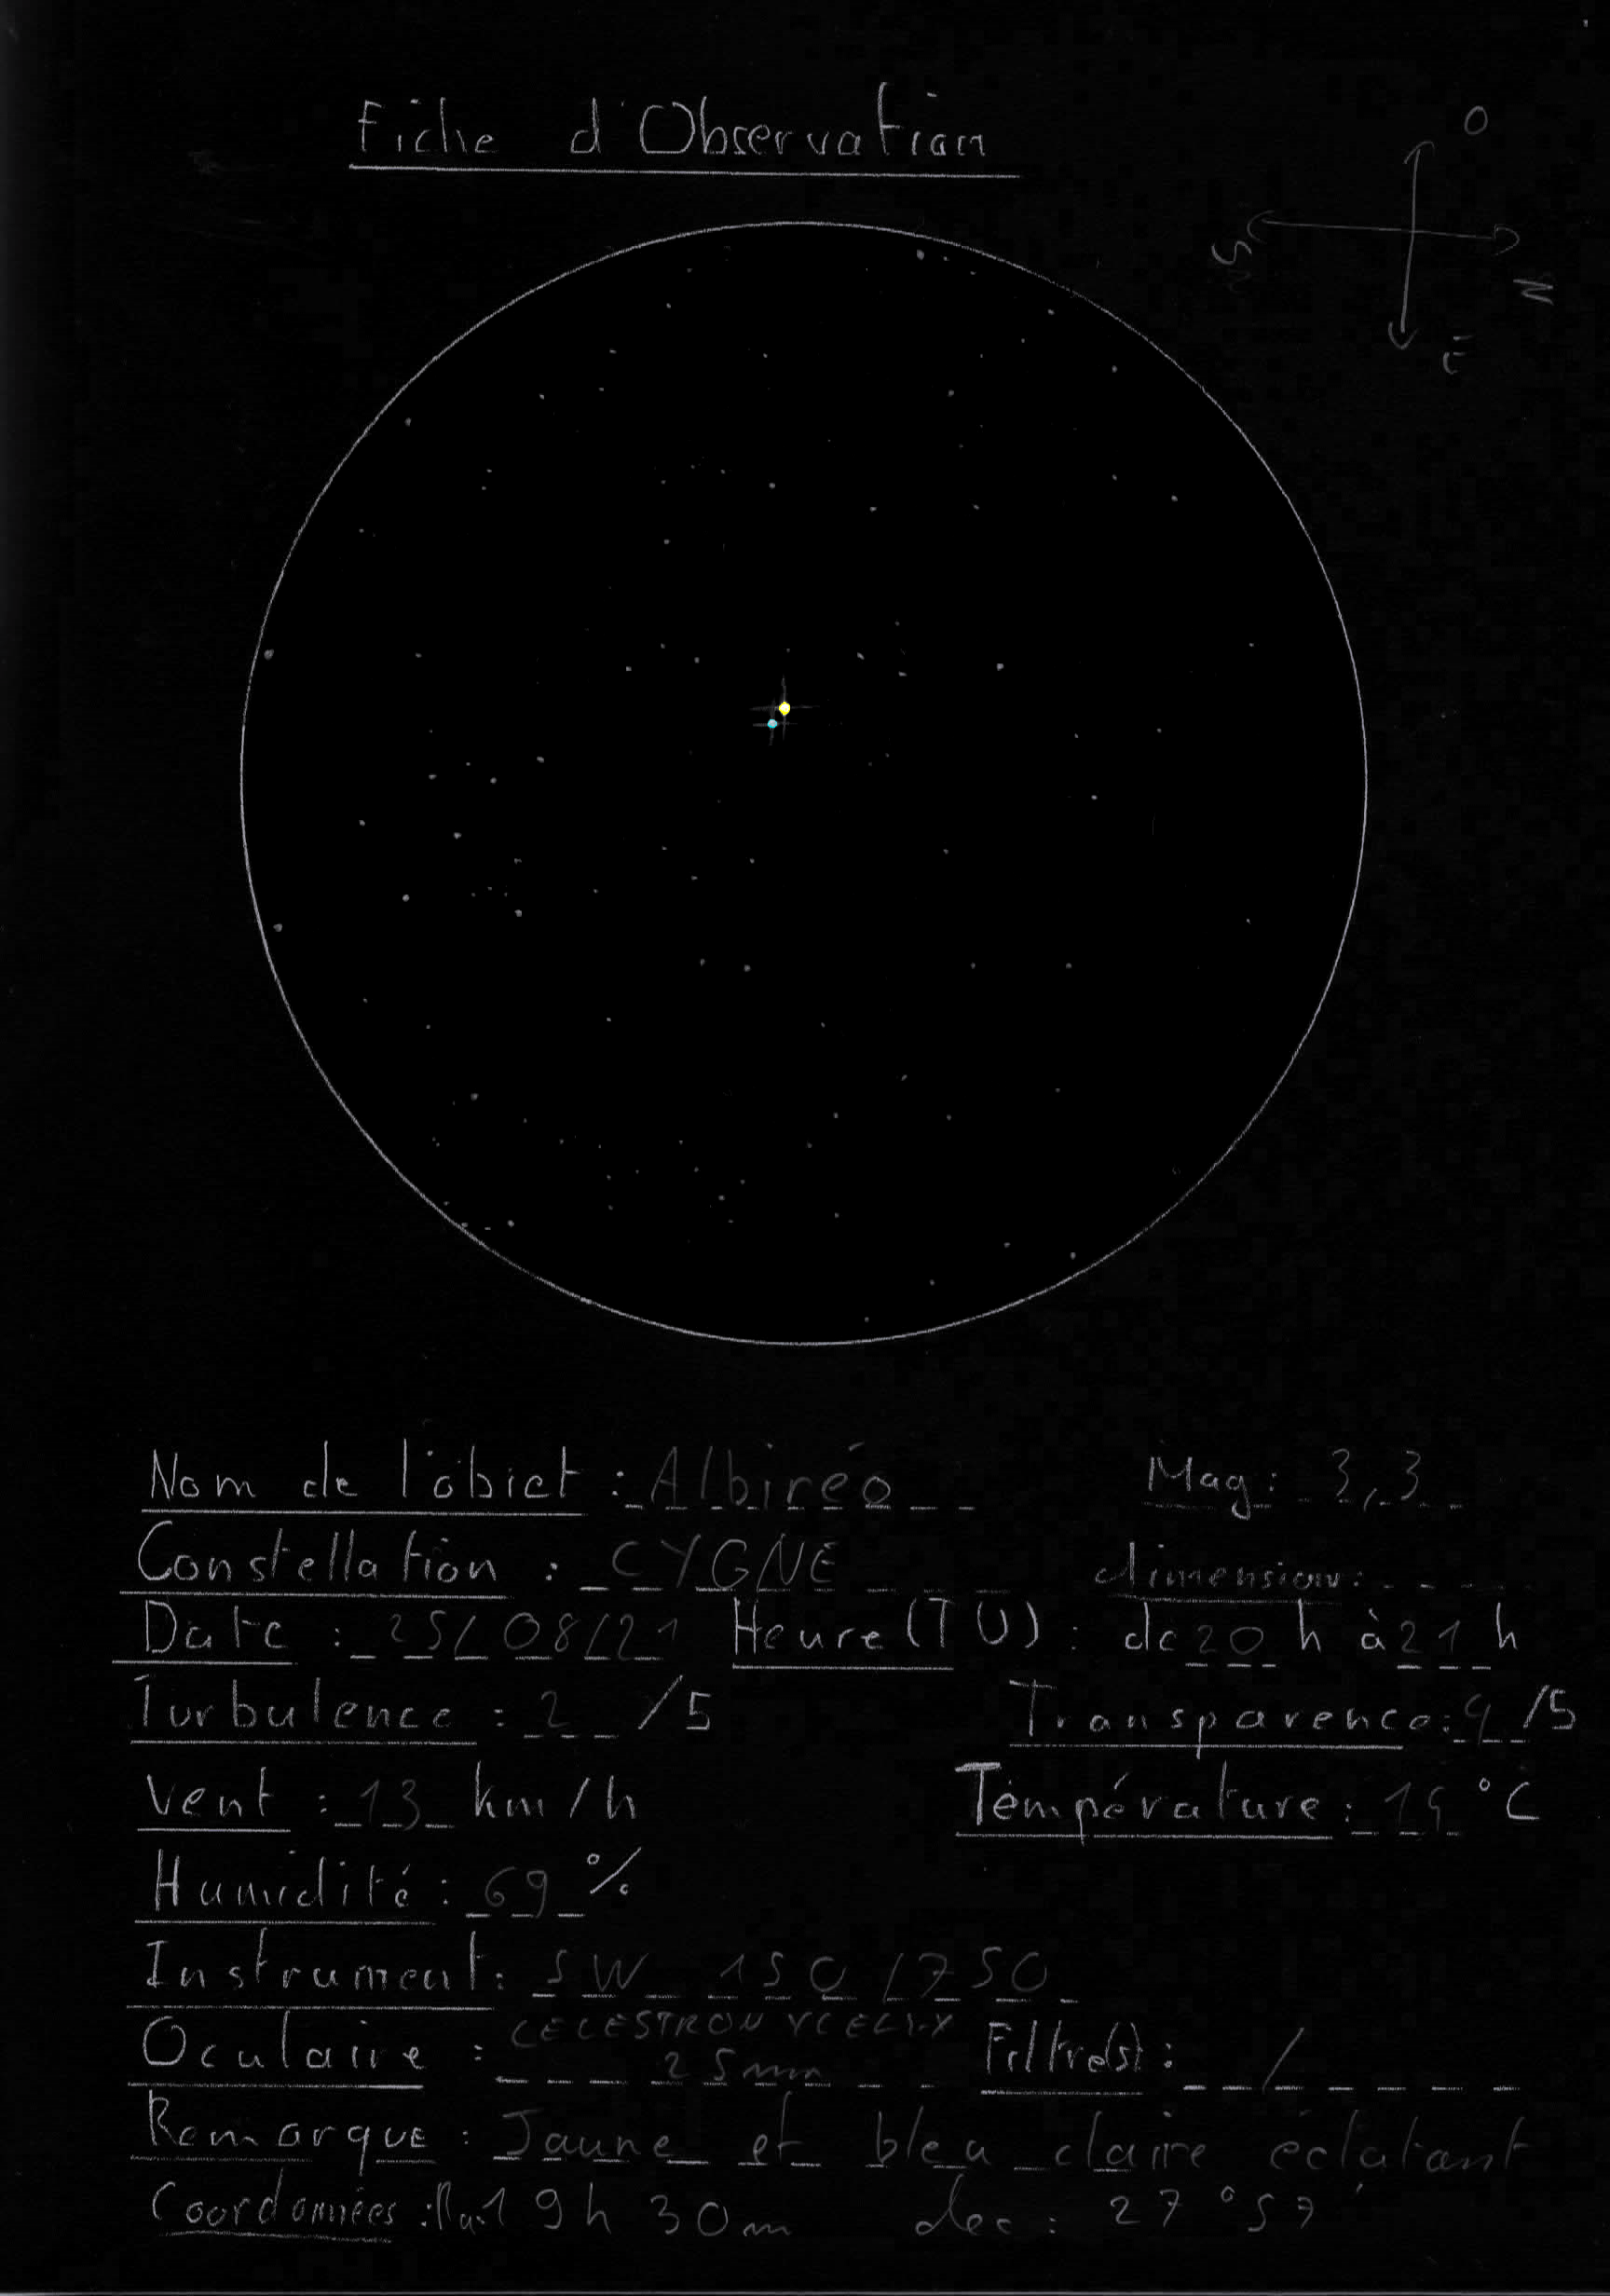 Fiche d'Observation
O
S
N
E
Nom de l'objet : Albiréo Mag : 3,3
Constellation : CYGNE dimension :
Date : 25/08/21 Heure (TU) : de 20 h à 21 h
Turbulence : 2 /5 Transparence : 4 /5
Vent : 13 km/h Température : 19 °C
Humidité : 69 %
Instrument : SW 150/750
Oculaire : CELESTRON 25mm Filtre(s) : /
Remarque : Jaune et bleu claire éclatant
Coordonnées : 19h 30m dec : 27°57'